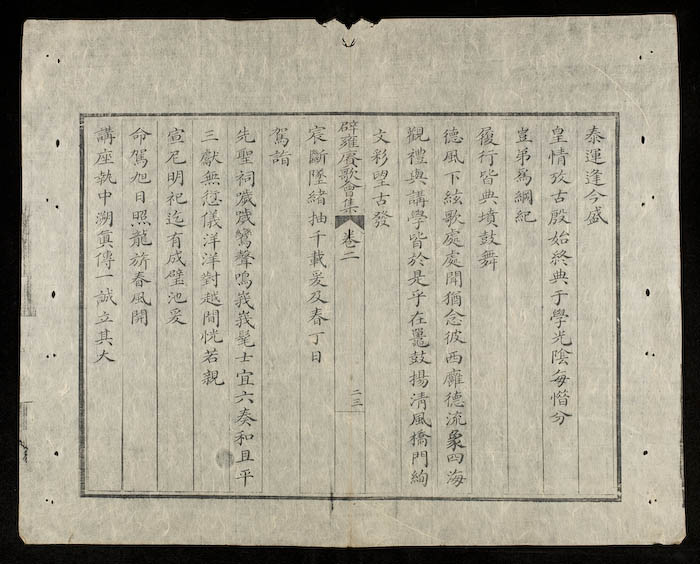 泰運逢今盛
皇情孜古殷始終典于學光陰每惜分
豈弟為綱紀
履行皆典墳鼓舞
德風下絃歌處處開猶念彼西廱德流象四海
觀禮與講學皆於是乎在鼉鼓揚清風橋門絢
文彩曌古發
辟雍賡歌會集 卷二 二三
宸斷墜緒抽千載爰及春丁日
駕詣
先聖祠歲歲鸞聲噦峩峩髦士宜六奏和且平
三獻無愆儀洋洋對越間恍若親
宣尼明祀迄有成璧池爰
命駕旭日照龍旂春風開
講座執中溯真傳一誠立其大